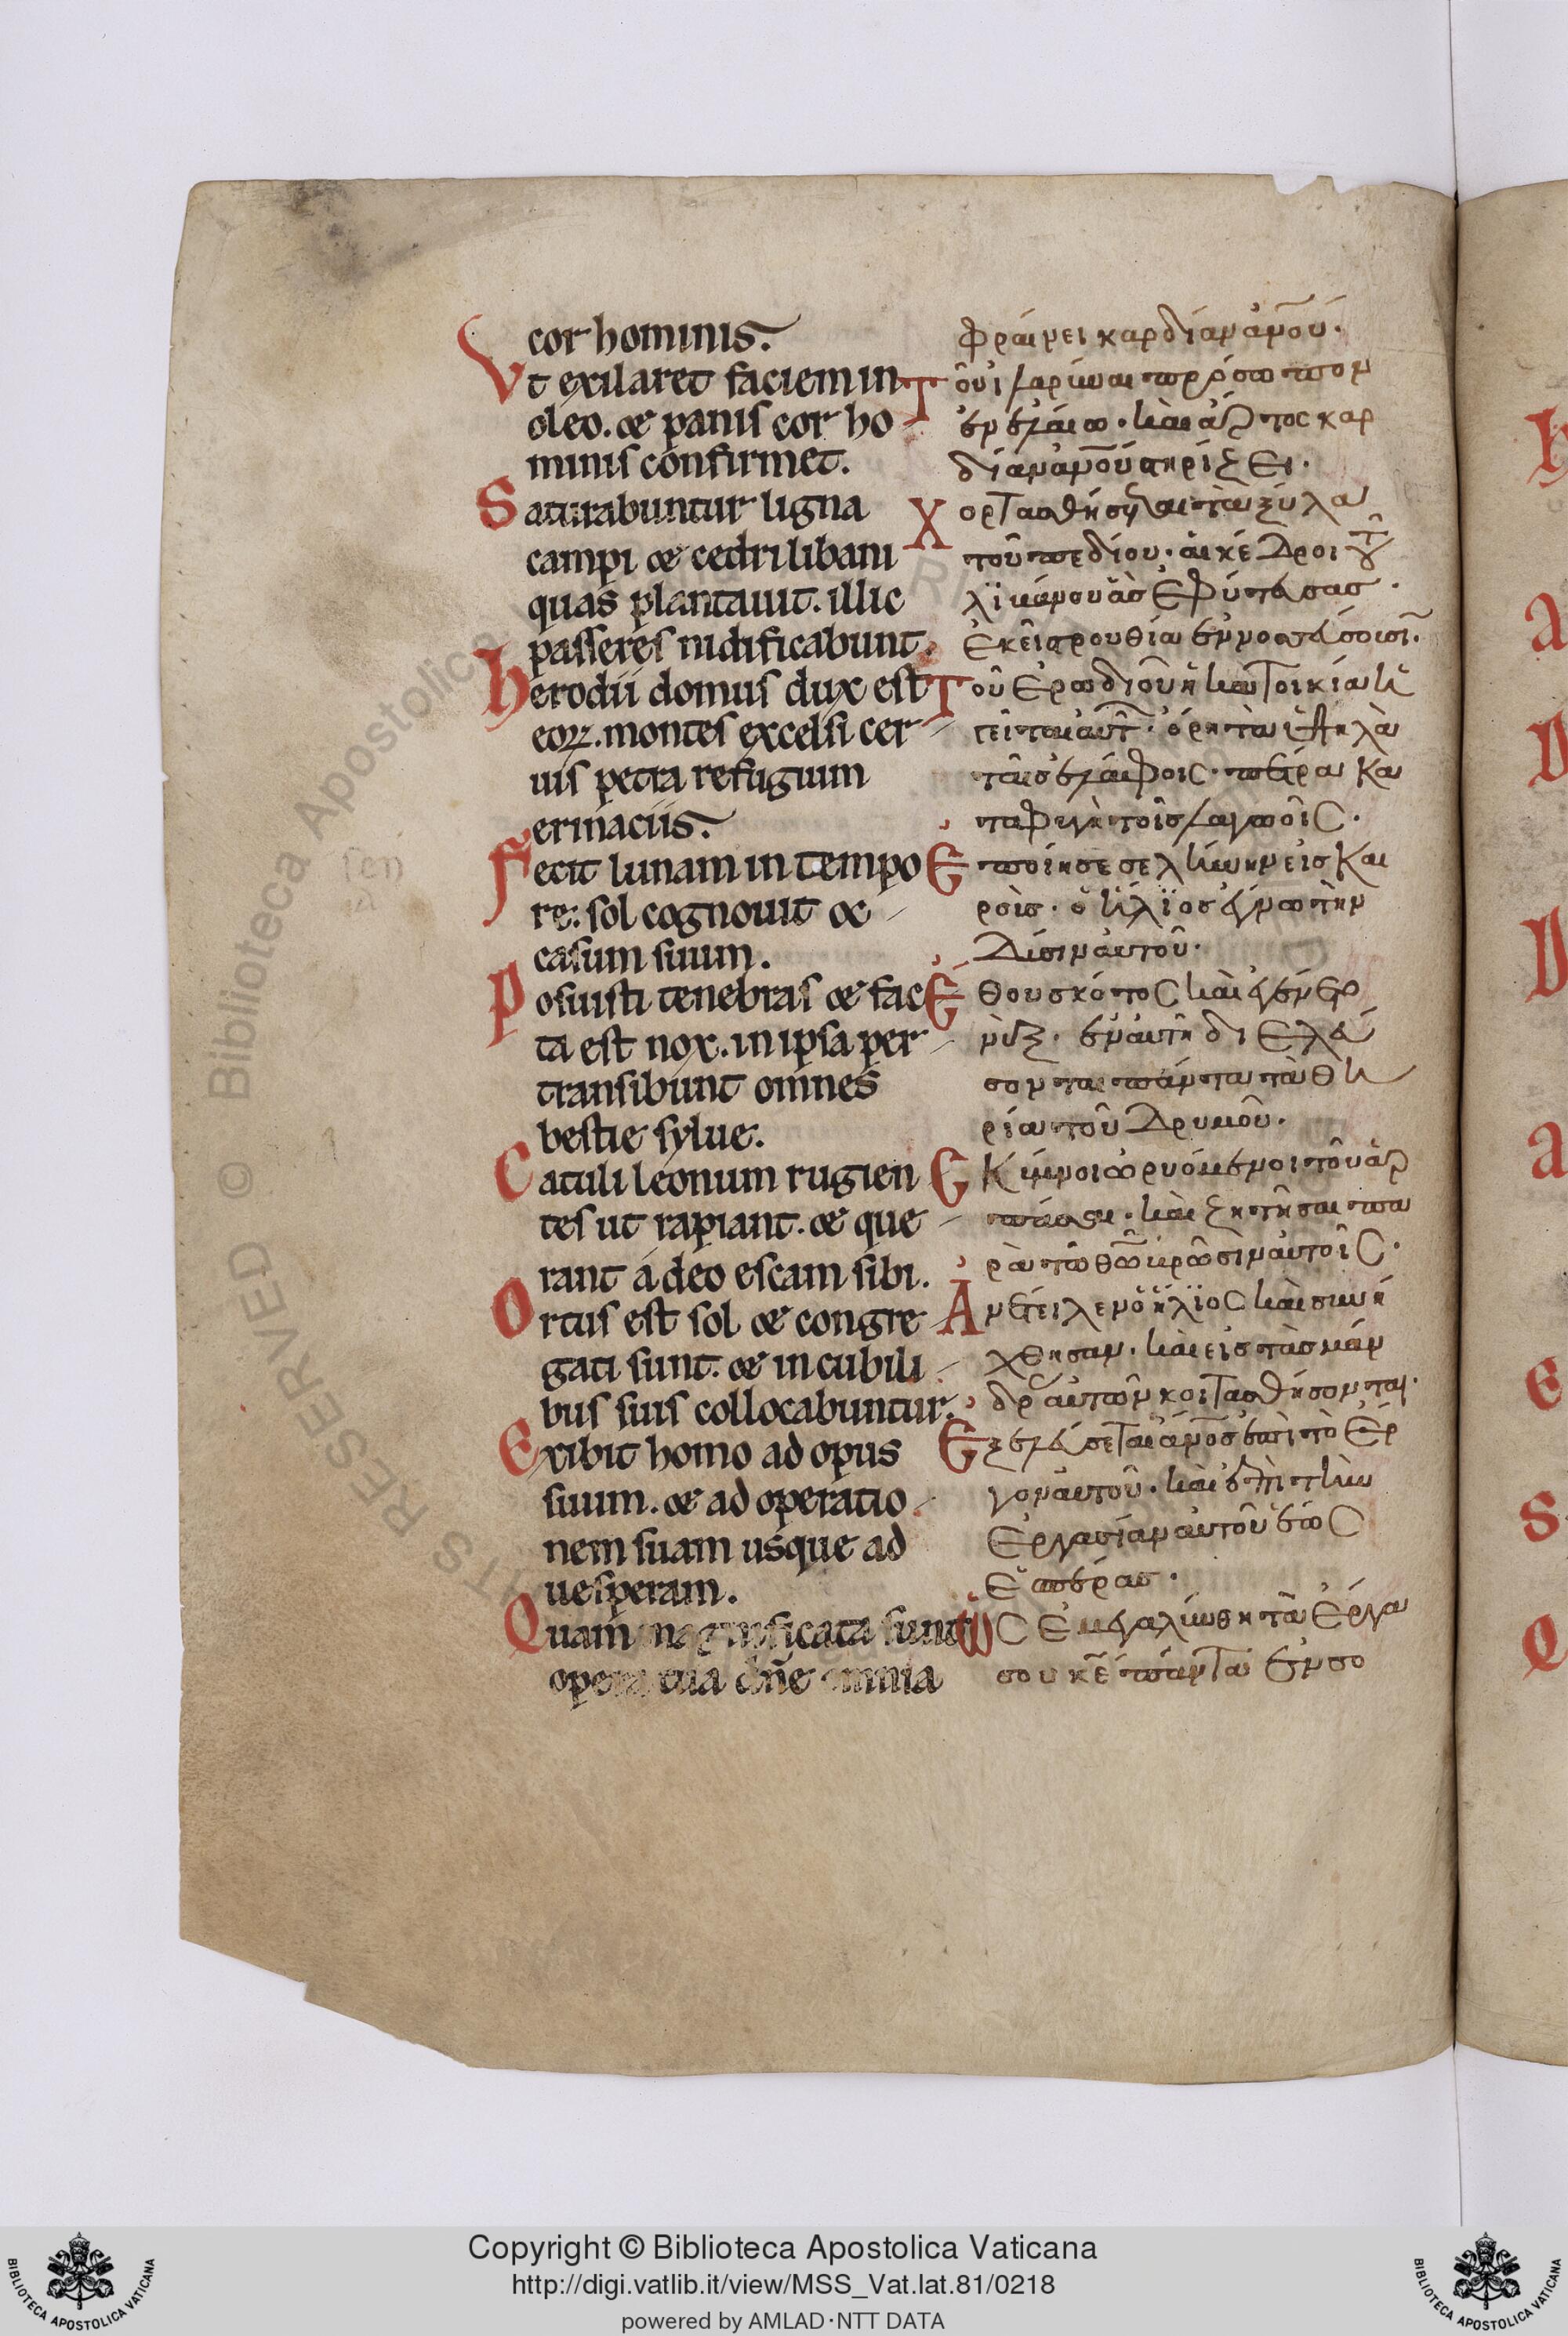 cor hominis.
Vt exilaret faciem in
oleo. & panis cor ho
minis confirmet.
Saturabuntur ligna
campi & cedri libani
quas plantauit. illic
passeres nidificabunt.
herodii domus dux est
eoꝝ. montes excelsi cer
uis petra refugium
ermaciis.
Fecit lunam in tempo
re: sol cognouit oc
casum suum.
Posuisti tenebras & fac
ta est nox. in ipsa per
transibunt omnes
bestie sylue.
Catuli leonum rugien
tes ut rapiant. & que
rant a deo escam sibi.
Ortus est sol & congre
gati sunt. & in cubili
bus suis collocabuntur.
Exibit homo ad opus
suum. & ad operatio
nem suam usque ad
uesperam.
Quam magnificata sunt
opera tua dn̄e omnia
φραίνει καρδίαν ἀν̅ου·
Τοῦ ἱλαρύναι πρόσωπον
ἐν ἐλαίω· καὶ ἄρτος καρ
δίαν ἀν̅ου στηρίξει·
Χορτασθήσεται τὰ ξύλα
τοῦ πεδίου· αἱ κέδροι τοῦ
λιβάνου ἃς ἐφύτευσας·
ἐκεῖ στρουθία ἐννοσσεύσουσι·
Τοῦ ἐρωδιοῦ ἡ κατοικία ἡ
γεῖται αὐτῶν· ὄρη τὰ ὑψηλὰ
ταῖς ἐλάφοις· πέτρα κα
ταφυγὴ τοῖς λαγωοῖς·
Ἐποίησε σελήνην εἰς και
ροὺς· ὁ ἥλϊος ἔγνω τὴν
δύσιν αὐτοῦ·
Ἔθου σκότος καὶ ἐγένετο
νὺξ· ἐν αὐτῇ διελεύ
σονται πάντα τὰ θη
ρία τοῦ δρυμοῦ·
Σκύμνοι ὠρυόμενοι τοῦ ἁρ
πάσαι· καὶ ζητῆσαι πα
ρὰ τῶ θ̅ω βρῶσιν αὐτοῖς·
Ἀνέτειλεν ὁ ἥλϊος καὶ συνή
χθησαν· καὶ εἰς τὰς μάν
δρας αὐτῶν κοιτασθήσονται·
Ἐξελεύσεται ἄν̅ος ἐπὶ τὸ ἔρ
γον αὐτοῦ· καὶ ἐπὶ τὴν
ἐργασίαν αὐτοῦ ἕως
ἑσπέρας·
Ὡς ἐμεγαλύνθη τὰ ἔργα
σου κ̅ε πάντα ἐν σο
Copyright © Biblioteca Apostolica Vaticana
http://digi.vatlib.it/view/MSS_Vat.lat.81/0218
powered by AMLAD·NTT DATA